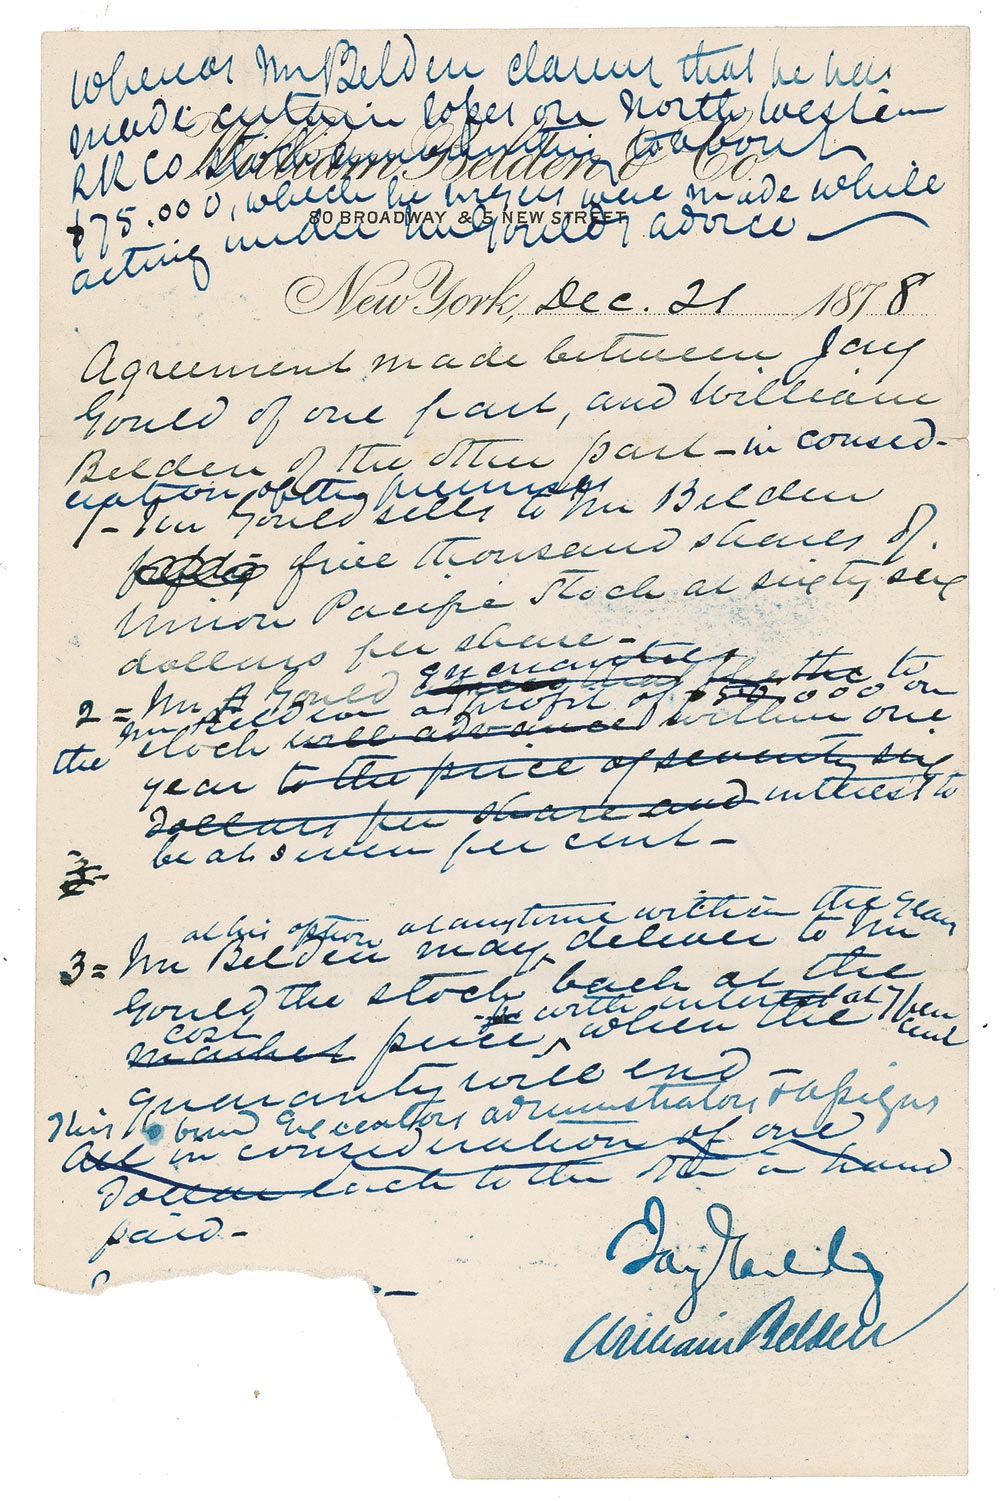 Whereas Mr Belden claims that he has
made certain loses on North Western
RR Co stock amounting to about
William Belden & Co.
$75.000, which he were made while
80 BROADWAY & 5 NEW STREET
acting under Mr Gould's advice
New York, Dec. 21 1878
Agreement made between Jay
Gould of one part, and William
Belden of the other part - in consid-
eration of the premises
1 - Mr Gould sells to Mr Belden
five thousand shares of
Union Pacific Stock at sixty six
dollars per share -
guaranties to
2 = Mr Gould
Mr Belden a profit of $50,000 on
the stock will advance within one
year to the price of seventy six
dollars per share and interest to
be at seven per cent -
3
at his option at anytime within the year
3 = Mr Belden may deliver to Mr
Gould the stock back at the
cost with interest at 7 per cent
market price, when the
guaranty will end -
This to bind Executors administrators & assigns
All in consideration of one
Dollar each to the other in hand
paid -
Jay Gould
William Belden